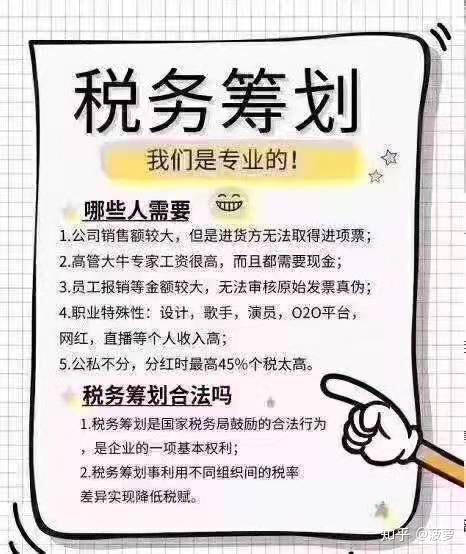 税务筹划
我们是专业的！
哪些人需要
1.公司销售额较大，但是进货方无法取得进项票；
2.高管大牛专家工资很高，而且都需要现金；
3.员工报销等金额较大，无法审核原始发票真伪；
4.职业特殊性：设计，歌手，演员，O2O平台，
网红，直播等个人收入高；
5.公私不分，分红时最高45%个税太高。
税务筹划合法吗
1.税务筹划是国家税务局鼓励的合法行为
，是企业的一项基本权利；
2.税务筹划事利用不同组织间的税率
差异实现降低税赋。
知乎 @菠萝